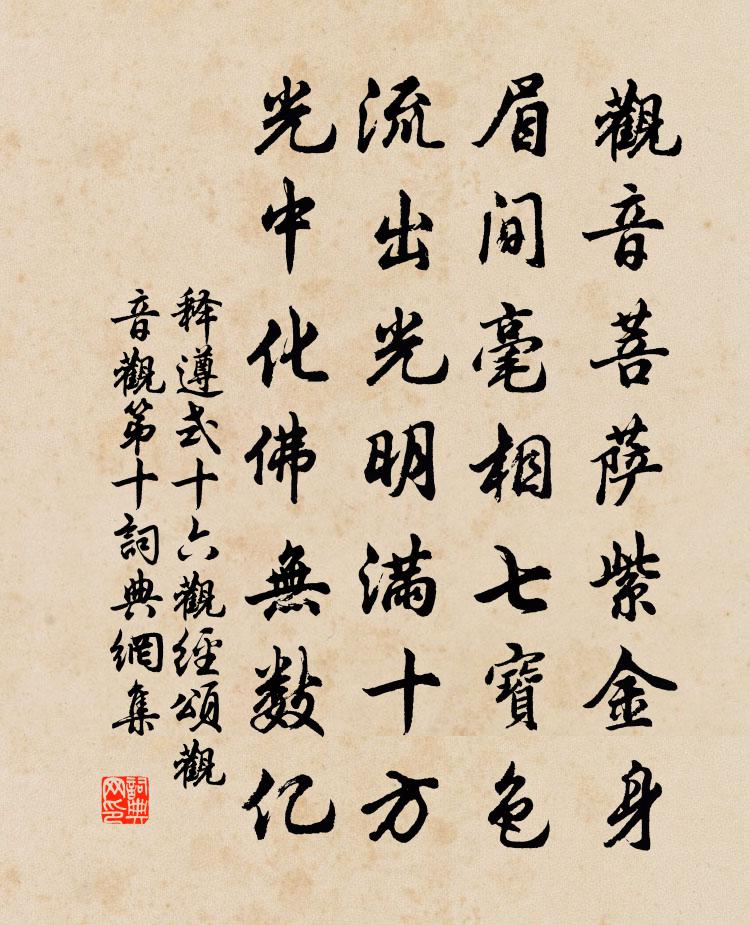 觀音菩萨紫金身
眉间毫相七寶色
流出光明滿十方
光中化佛無数亿
释遵式十六觀經頌觀
音觀第十詞典網集
詞典
网印